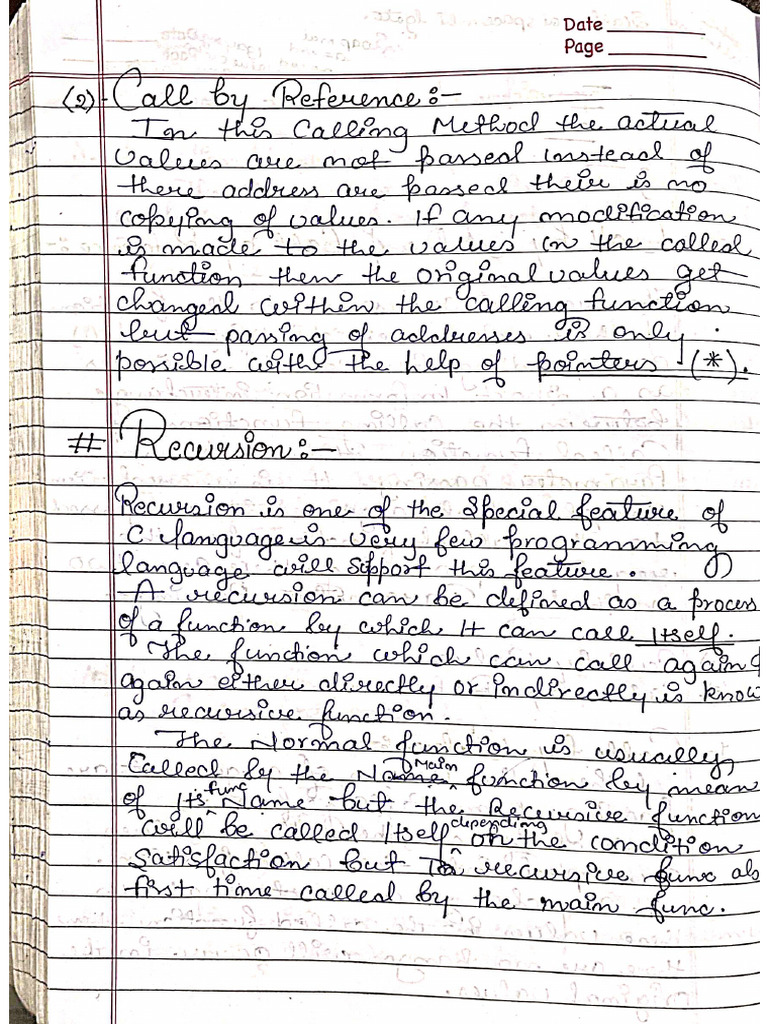 Date
Page
(2) Call by Reference :-
In this Calling Method the actual
values are not passed instead of
there address are passed their is no
copying of values. If any modification
is made to the values in the called
function then the original values get
changed within the calling function
but passing of addresses is only
possible withe the help of pointers (*).
# Recursion :-
Recursion is one of the Special feature of
C language is very few programming
language will support this feature.
A recursion can be defined as a process
of a function by which it can call itself.
The function which can call again &
again either directly or indirectly is know
as recursive function.
The Normal function is usually
Called by the Name Main function by mean
of its func Name but the Recursive function
will be called Itself depending on the condition
Satisfaction but recursive func als
first time called by the main func.